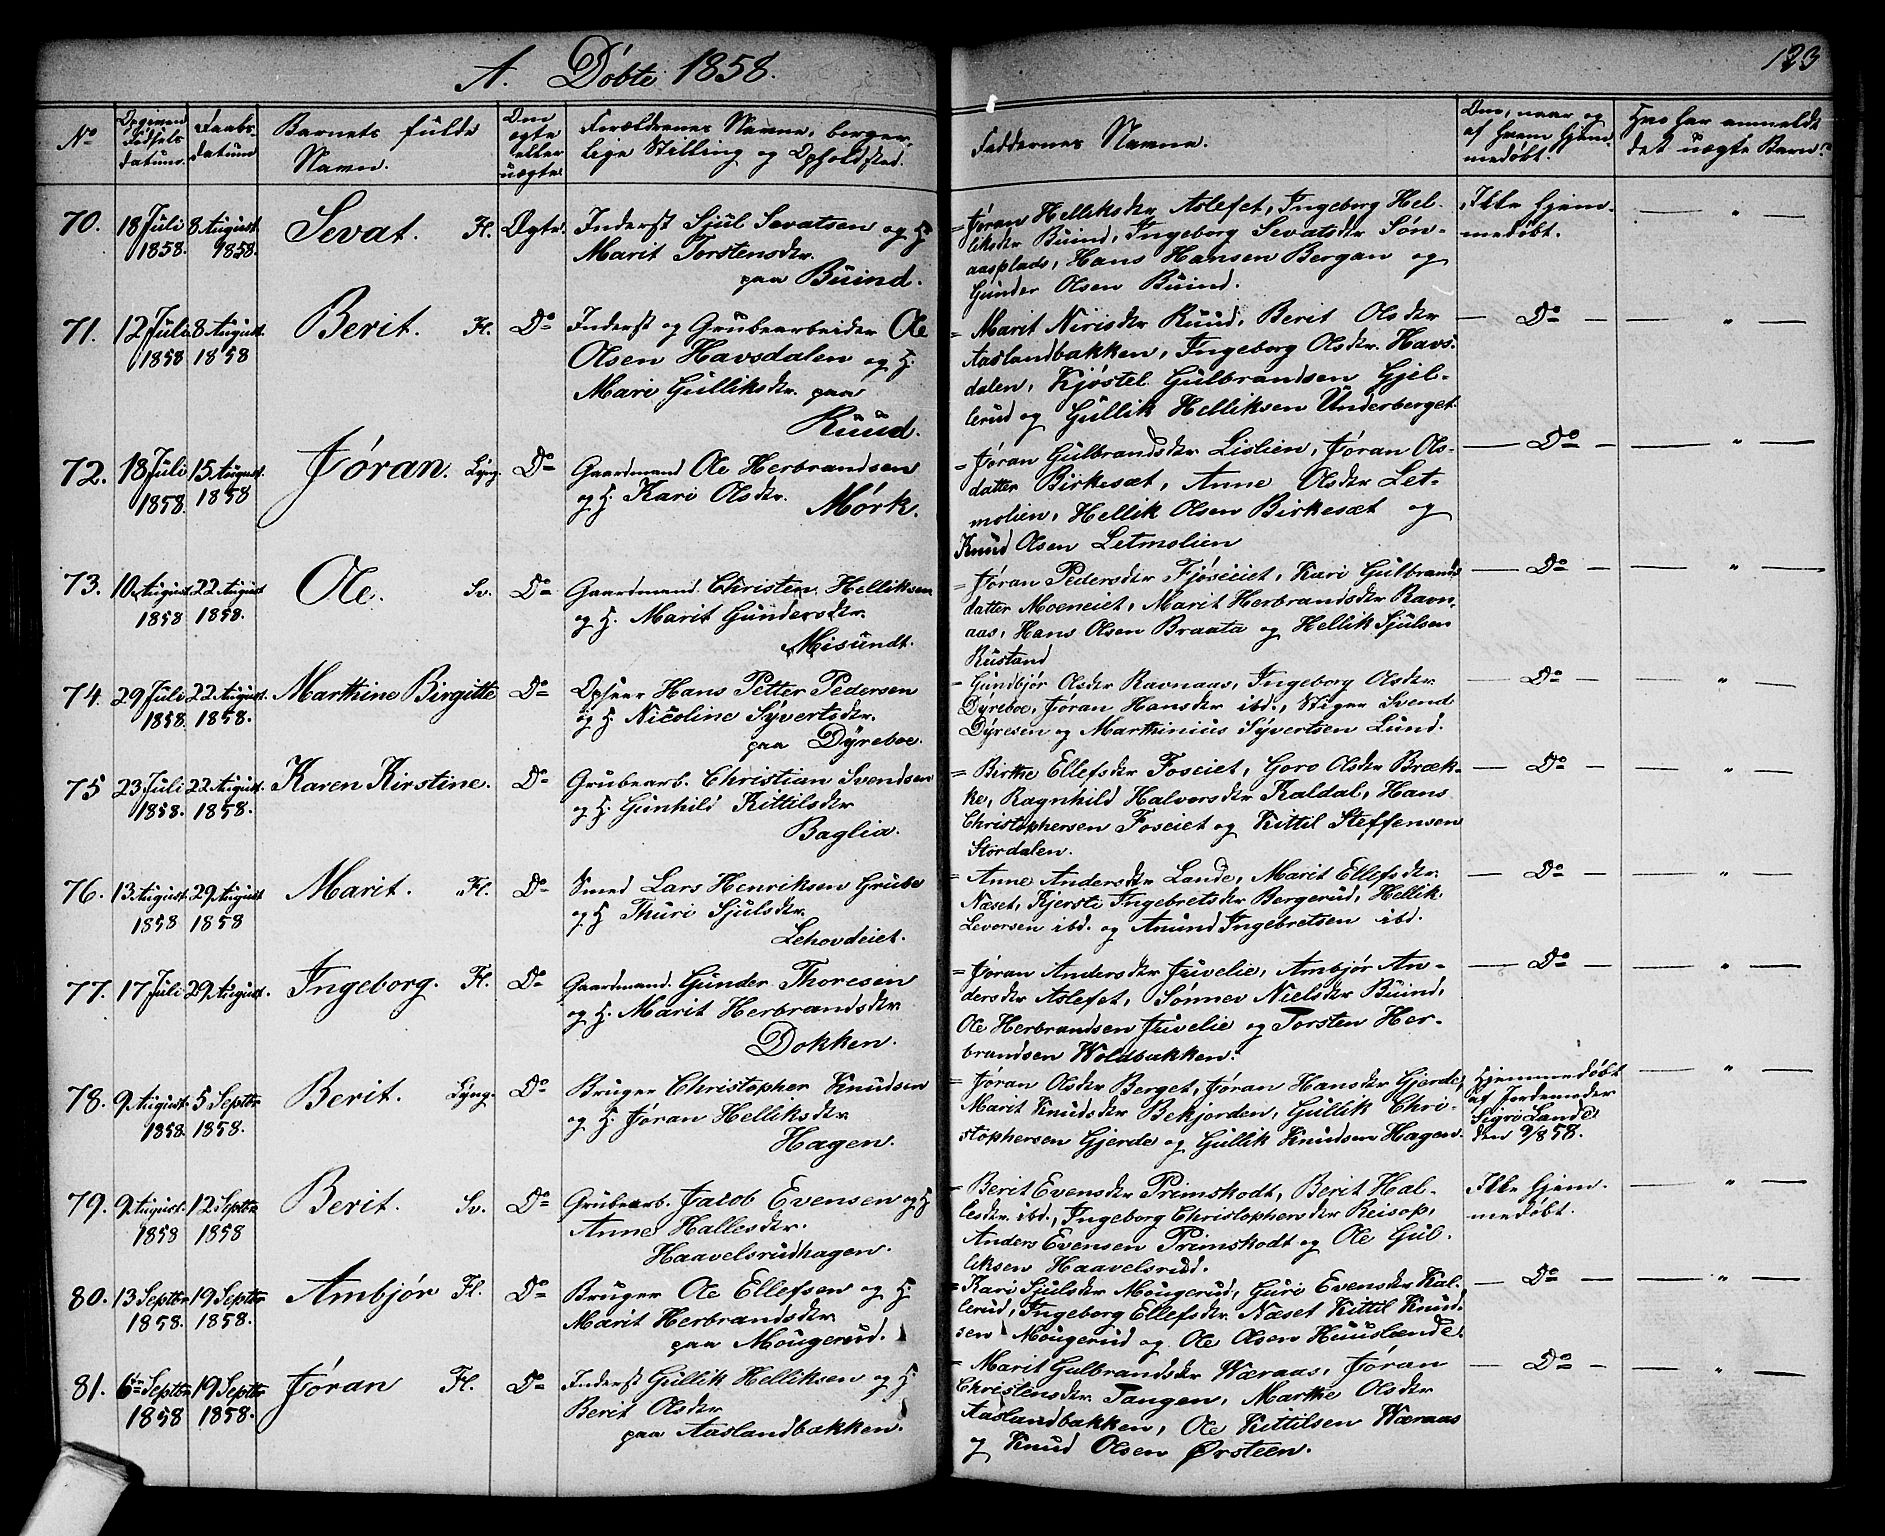 A. Døbte 1858.
123
No
Opgiven Fødsels datum.
Daabs-datum
Barnets fulde Navn.
Om ægte eller uægte
Forældrenes Navne, borger-
lige Stilling og Opholdsted.
Faddernes Navne.
Om, naar og af hvem hjem-
medøbt.
Hvo har anmeldt
det uægte Barn?
70. 18 Juli 1858. 8 August 1858. Sevat. Fl. Ægte.
Inderst Sjul Sevatsen og H
Marit Torstensdtr.
paa Buind.
= Jøran Helliksdtr Aslefet, Ingeborg Hel-
liksdtr Buind, Ingeborg Sevatsdtr Søn-
aasplads, Hans Hansen Bergan og
Gunder Olsen Buind.
Ikke hjem-
medøbt.
— " —
71. 12 Juli 1858 8 August 1858 Berit. Fl. Do
Inderst og Grubearbeider Ole
Olsen Havsdalen og H.
Mari Gulliksdtr. paa
Ruud.
= Marit Nirisdtr Ruud, Berit Olsdtr
Aaslandbakken, Ingeborg Olsdtr. Havs-
dalen, Kjøstel Gulbrandsen Gjel-
lerud og Gullik Helliksen Underberget.
— Do —
— " —
72. 18 Juli 1858. 15 August. 1858 Jøran. Lyng. Do
Gaardmand Ole Herbrandsen
og H. Kari Olsdtr.
Mørk.
= Jøran Gulbrandsdtr Lislien, Jøran Ols-
datter Birkesæt, Anne Olsdtr Let-
molien, Hellik Olsen Birkesæt og
Knud Olsen Letmolien
— Do —
— " —
73. 10 August 1858 22 August 1858. Ole. Sv. Do
Gaardmand Christen Helliksen
og H. Marit Gundersdtr.
Misundt.
= Jøran Pedersdtr Fjøseiet, Kari Gulbrands
datter Moeneiet, Marit Herbrandsdtr Ravn-
aas, Hans Olsen Braata og Hellik Sjulsen
Rustand
— Do —
— " —
74. 29 Juli 1858. 22 August. 1858. Marthine Birgitte Do
Opseer Hans Petter Pedersen
og H. Nicoline Syvertsdtr.
paa Dyreboe.
= Gundbjør Olsdtr Ravnaas, Ingeborg Olsdtr.
Dyreboe, Jøran Hansdtr ibd., Stiger Svend
Dyresen og Marthinius Syvertsen Lund.
— Do —
— " —
75 23 Juli 1858. 22 August. 1858. Karen Kirstine. Do
Grubearb. Christian Svendsen
og H. Gunhild Kittilsdtr
Baglia.
= Birthe Ellefsdtr Foseiet, Goro Olsdtr Bræk-
ke, Ragnhild Halvorsdtr Kaldal, Hans
Christophersen Foseiet og Kittil Steffensen
Stordalen.
— Do —
— " —
76. 13 August. 1858 29 August 1858 Marit. Fl. Do
Smed Lars Henriksen Grube
og H Thuri Sjulsdtr.
Lehovdeiet.
= Anne Andersdtr Lande, Marit Ellefsdtr.
Næset, Kjersti Ingebretsdtr Bergerud, Hellik
Levorsen ibd. og Anund Ingebretsen ibd.
— Do —
— " —
77. 17 Juli 29 August. Ingeborg. Fl. Do
Gaardmand. Gunder Thoresen
og H. Marit Herbrandsdtr.
Dokken.
= Jøran Andersdtr Juvelie, Ambjør An-
dersdtr Aslefet, Sønnev Nielsdtr Buind,
Ole Herbrandsen Juvelie og Torsten Her-
brandsen Woldbakken.
— Do —
— " —
78. 9 August. 1858. 5 Septbr 1858. Berit. Lyng. Do
Bruger Christopher Knudsen
og H. Jøran Helliksdtr
Hagen.
= Jøran Olsdtr Berget, Jøran Hansdtr Gjerde,
Marit Knudsdtr Bekjorden, Gullik Chri-
stophersen Gjerde og Gullik Knudsen Hagen.
Hjemmedøbt
af Jordemoder
Sigri Lande
den 9/8 58.
— " —
79. 9 August. 1858 12 Septbr 1858 Berit. Sv. Do
Grubearb. Jacob Evensen og H
Anne Hallesdtr.
Haavelsrudhagen.
= Berit Evensdtr Primskodt, Berit Hal-
lesdtr. ibd., Ingeborg Christophersdtr Reisop,
Anders Evensen Primskodt og Ole Gul-
liksen Haavelsrud.
Ikke hjem-
medøbt.
— " —
80. 13 Septbr 1858. 19 Septbr 1858. Ambjør Fl. Do
Bruger Ole Ellefsen og H.
Marit Herbrandsdtr
paa Mougerud.
= Kari Sjulsdtr Mougerud, Guri Evensdtr Kal-
lerud, Ingeborg Ellefsdtr. Næset Kittil Knud-
sen Mougerud og Ole Olsen Huuslænde.
— Do —
— " —
81. 6te Septbr 1858 19 Septbr 1858. Jøran Fl. Do
Inderst Gullik Helliksen og H
Berit Olsdtr
paa Aaslandbakken.
= Marit Gulbrandsdtr Wæraas, Jøran
Christensdtr. Tangen, Marthe Olsdtr
Aaslandbakken, Ole Kittilsen Wæraas
og Knud Olsen Ørsteen.
— Do —
— " —